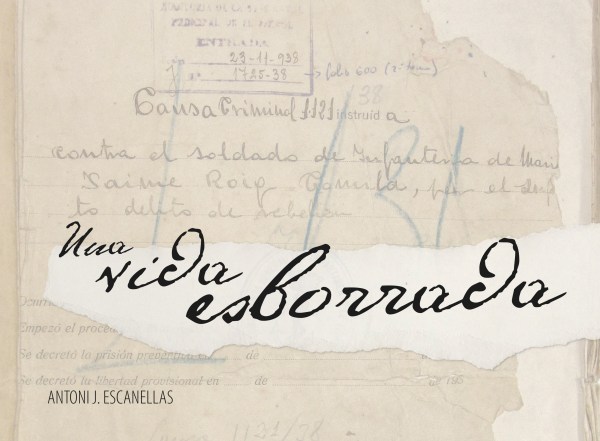 ENTRADA
23-11-938
1725-38 → fols 600
38
Causa Criminal 1121 instruida
contra el soldado de Infanteria de Mari
Jaime Roig Comila, por el
to delito de rebelion
Una
vida
esborrada
Empezó el proce
Se decretó la prisión preventi de
Se decretó la libertad provisional en de de 193
ANTONI J. ESCANELLAS
1131/38